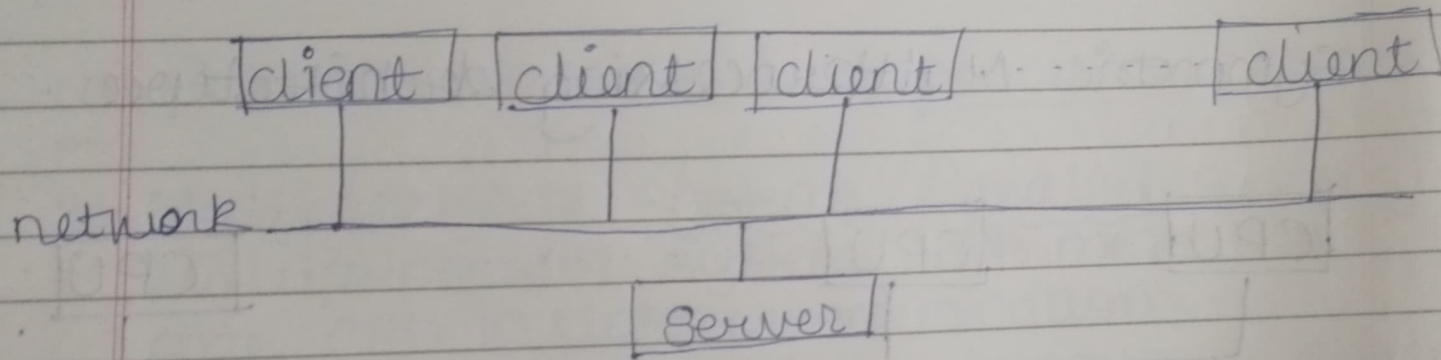 client client client ........ client
network
server